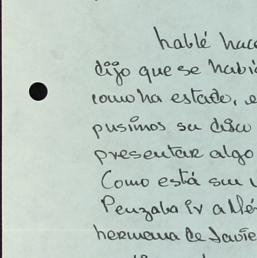 hablé hace
dijo que se habí
como ha estado, e
pusimos su disco
presentar algo
Como está su
Pensaba ir a Mé
hermana de Javie